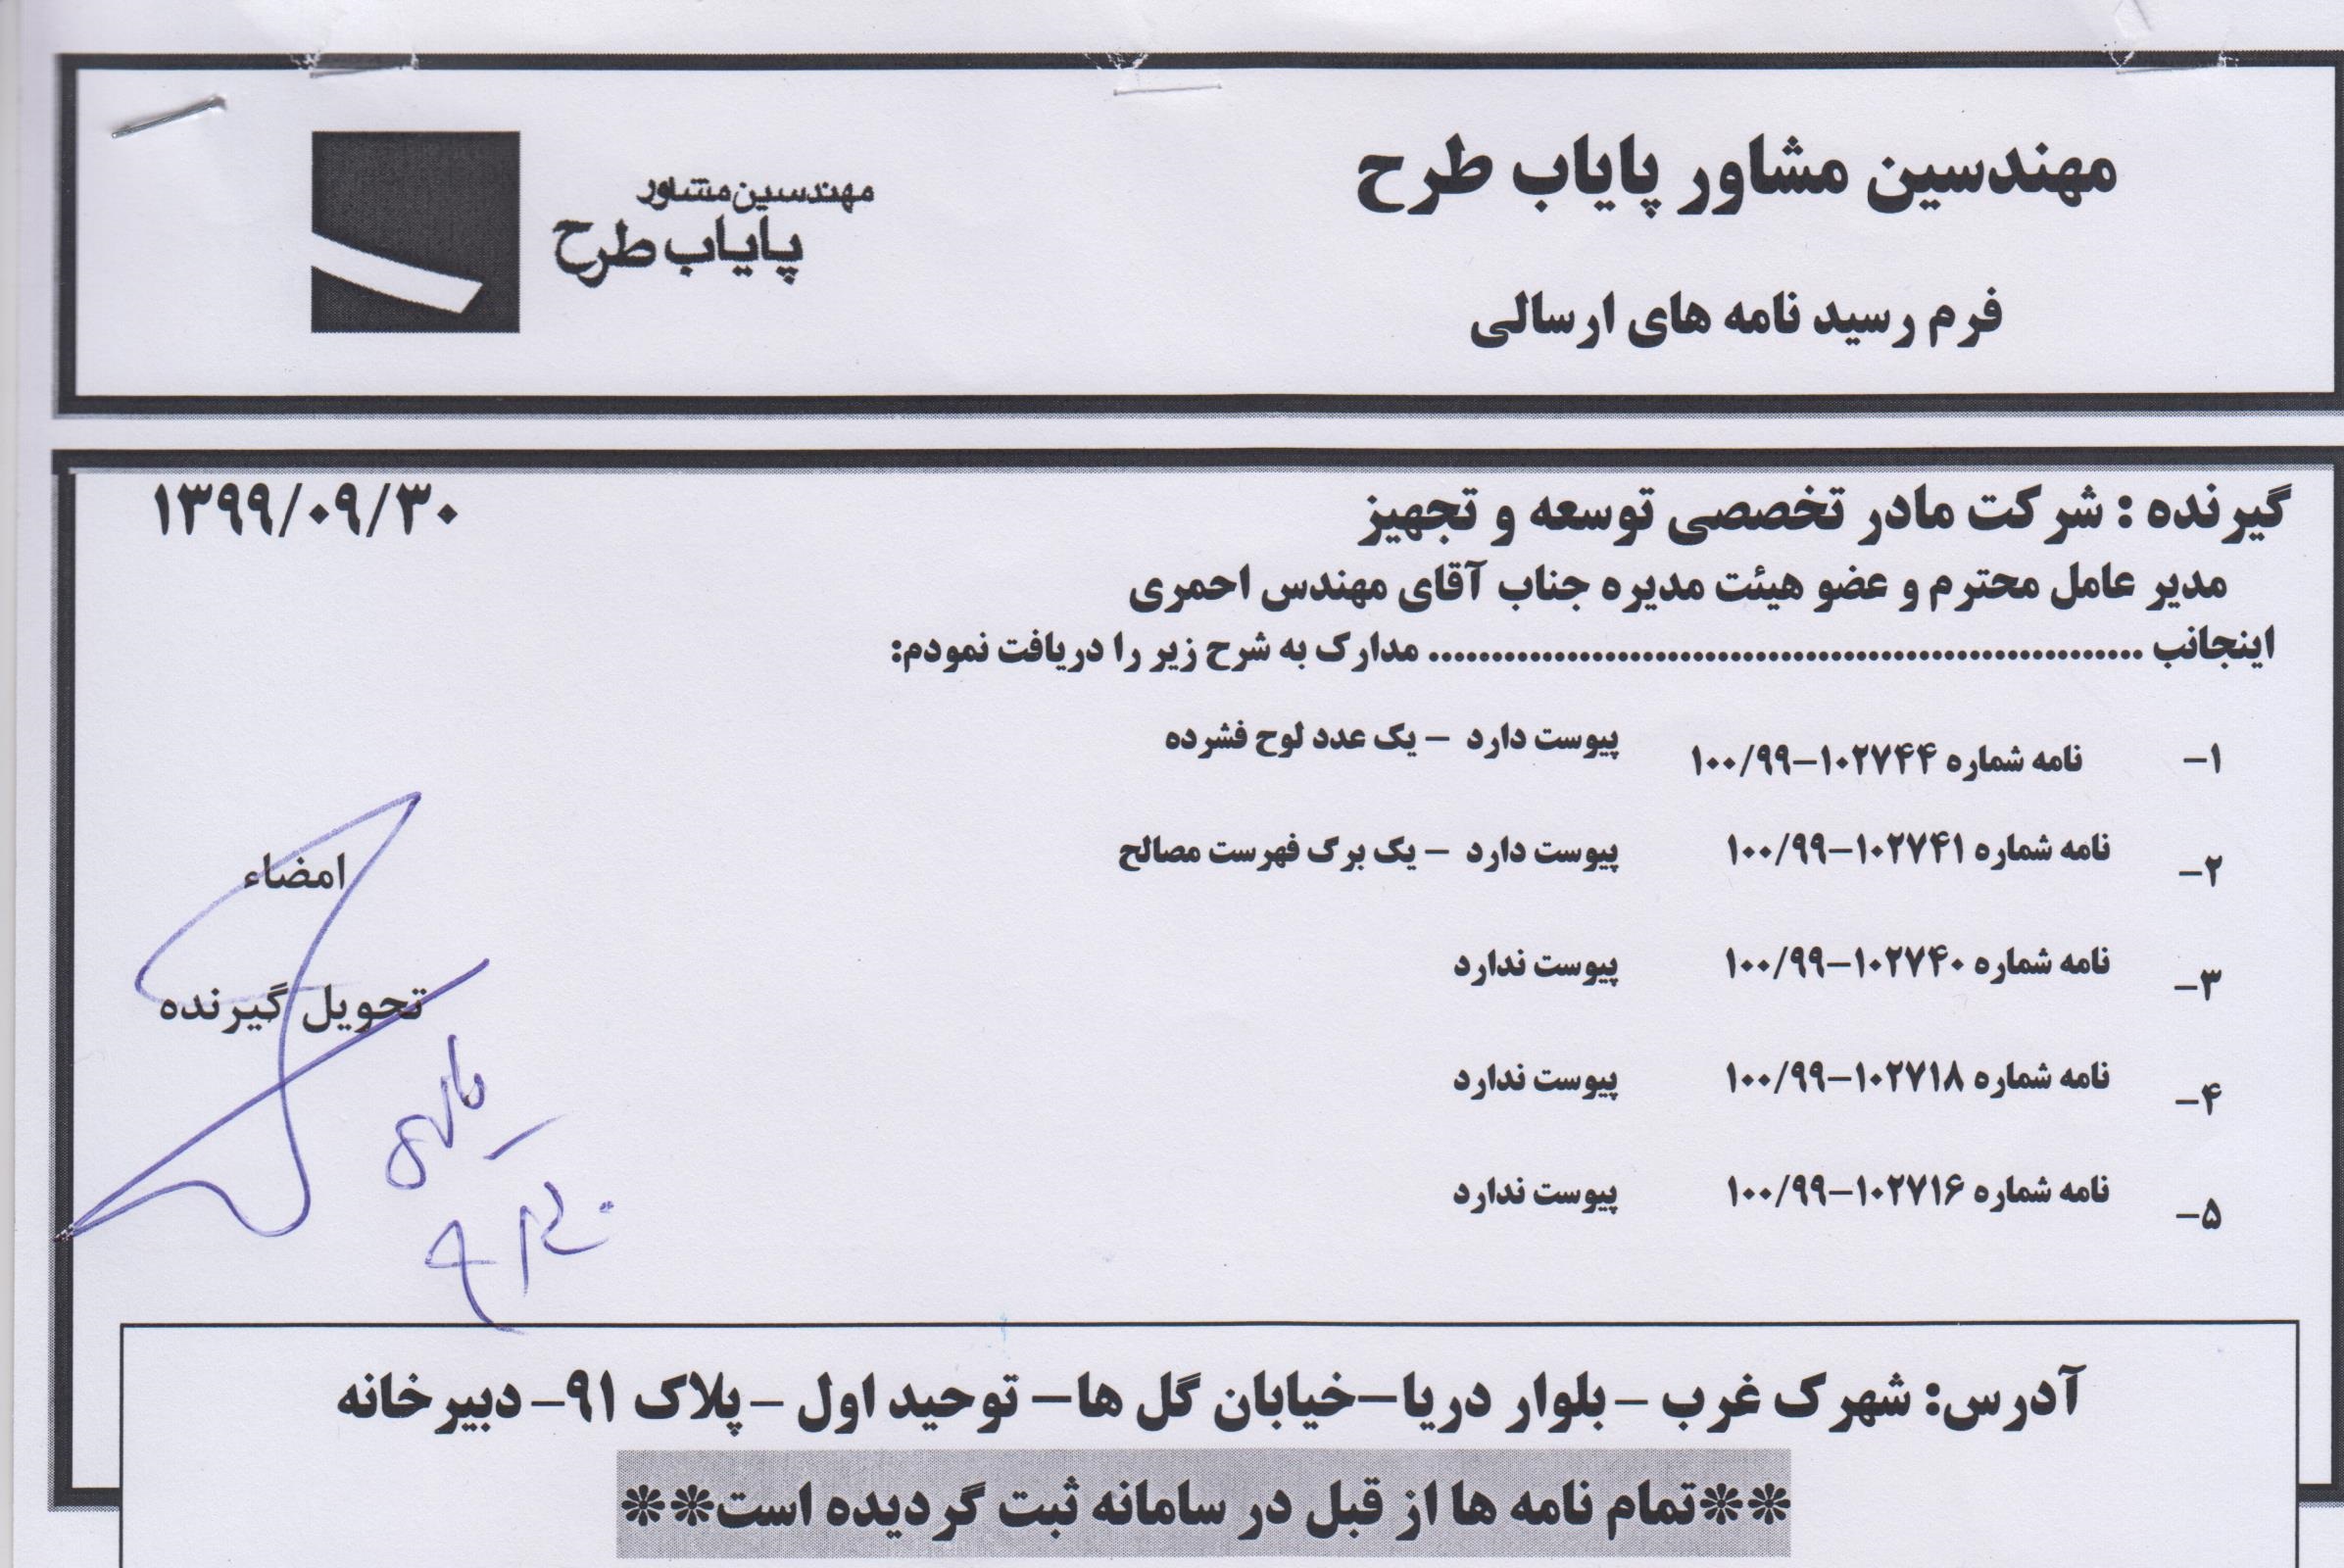 مهندسین مشاور پایاب طرح
مهندسین مشاور
پایاب طرح
فرم رسید نامه های ارسالی
گیرنده : شرکت مادر تخصصی توسعه و تجهیز
۱۳۹۹/۰۹/۳۰
مدیر عامل محترم و عضو هیئت مدیره جناب آقای مهندس احمری
اینجانب ........................................................ مدارک به شرح زیر را دریافت نمودم:
۱- نامه شماره ۱۰۲۷۴۴-۱۰۰/۹۹ پیوست دارد - یک عدد لوح فشرده
۲- نامه شماره ۱۰۲۷۴۱-۱۰۰/۹۹ پیوست دارد - یک برگ فهرست مصالح
۳- نامه شماره ۱۰۲۷۴۰-۱۰۰/۹۹ پیوست ندارد
۴- نامه شماره ۱۰۲۷۱۸-۱۰۰/۹۹ پیوست ندارد
۵- نامه شماره ۱۰۲۷۱۶-۱۰۰/۹۹ پیوست ندارد
امضاء
تحویل گیرنده
آدرس: شهرک غرب - بلوار دریا-خیابان گل ها- توحید اول - پلاک ۹۱- دبیرخانه
**تمام نامه ها از قبل در سامانه ثبت گردیده است**